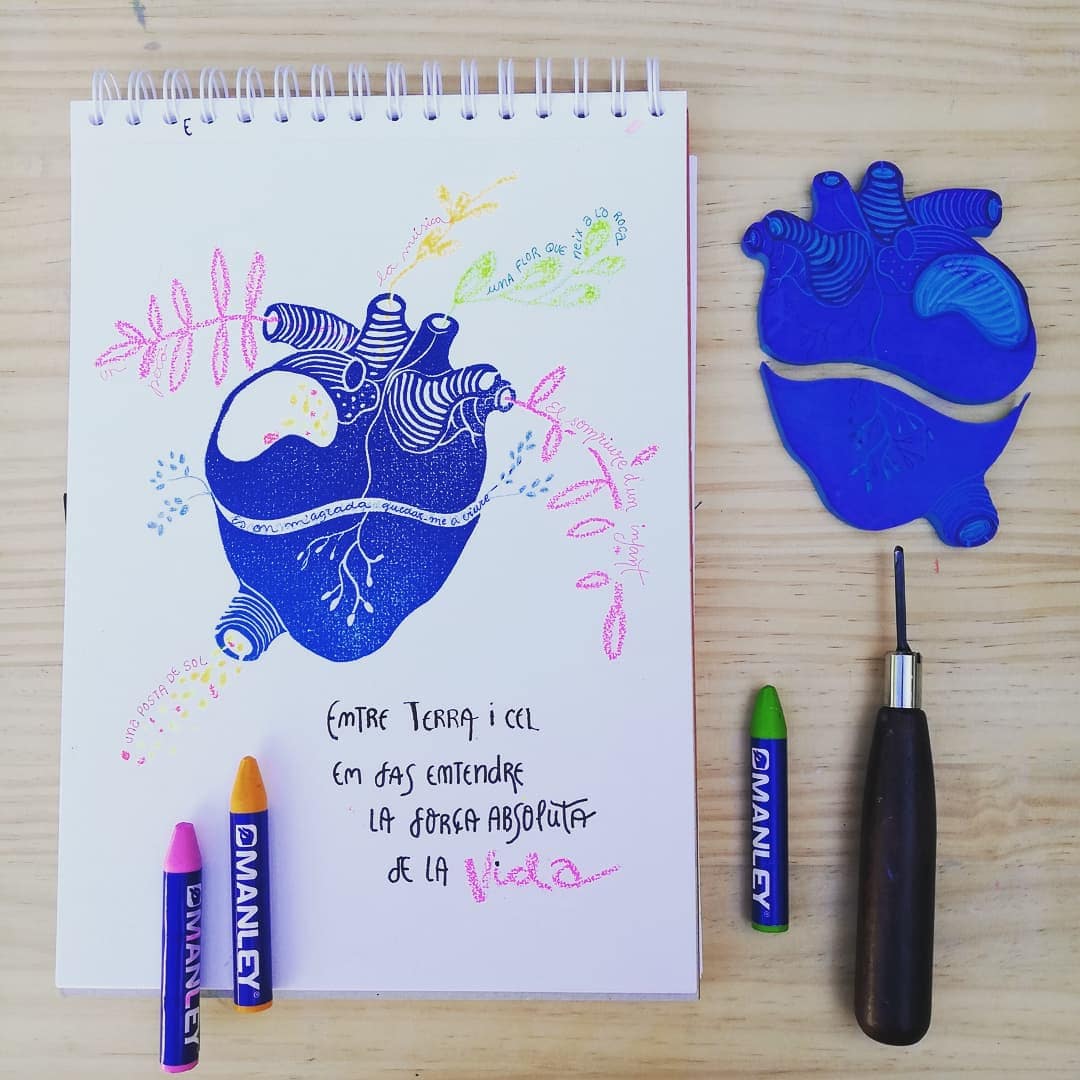 E
la música
UNA FLOR QUE NEIX A LA ROCA
Un petó
El somriure d'un infant
És on m'agrada quedar-me a viure
UNA POSTA DE SOL
ENTRE TERRA i CEL
EM FAS ENTENDRE
LA FORÇA ABSOLUTA
DE LA Vida
MANLEY
MANLEY
MANLEY